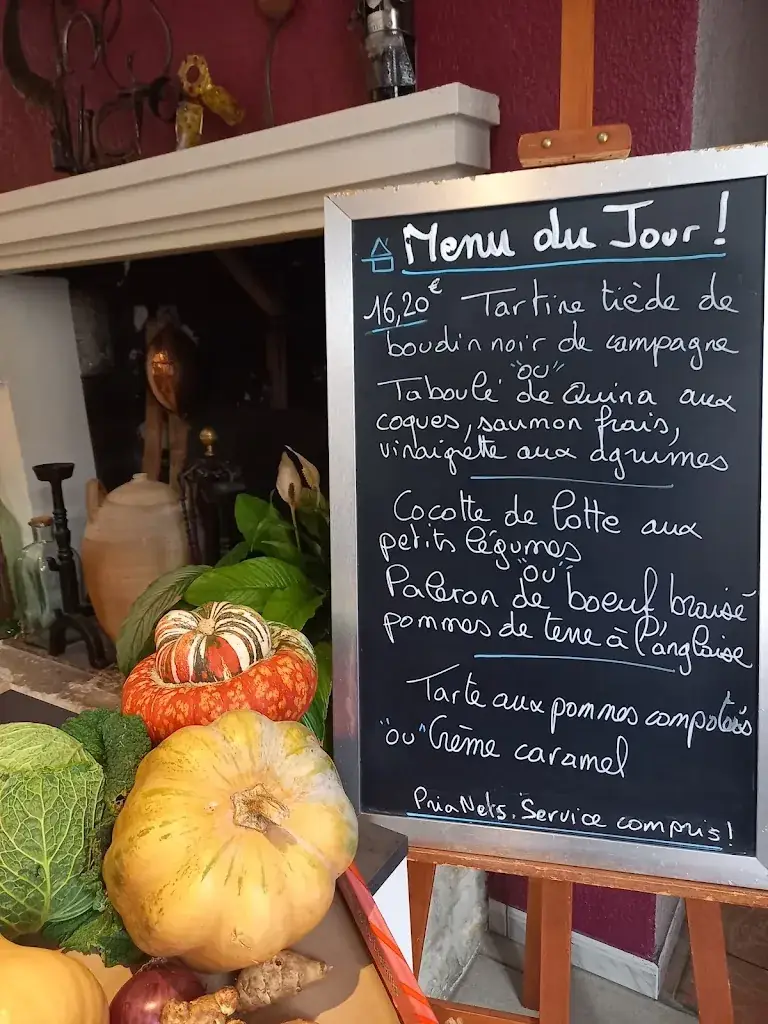 Menu du Jour !
16,20€ Tartine tiède de
boudin noir de campagne
"ou"
Taboulé de Quina aux
coques, saumon frais,
vinaigrette aux agrumes
Cocotte de lotte aux
petits légumes
"ou"
Paleron de boeuf braisé
pommes de terre à l'anglaise
Tarte aux pommes compotées
"ou" Crème caramel
Prix Nets. Service compris!